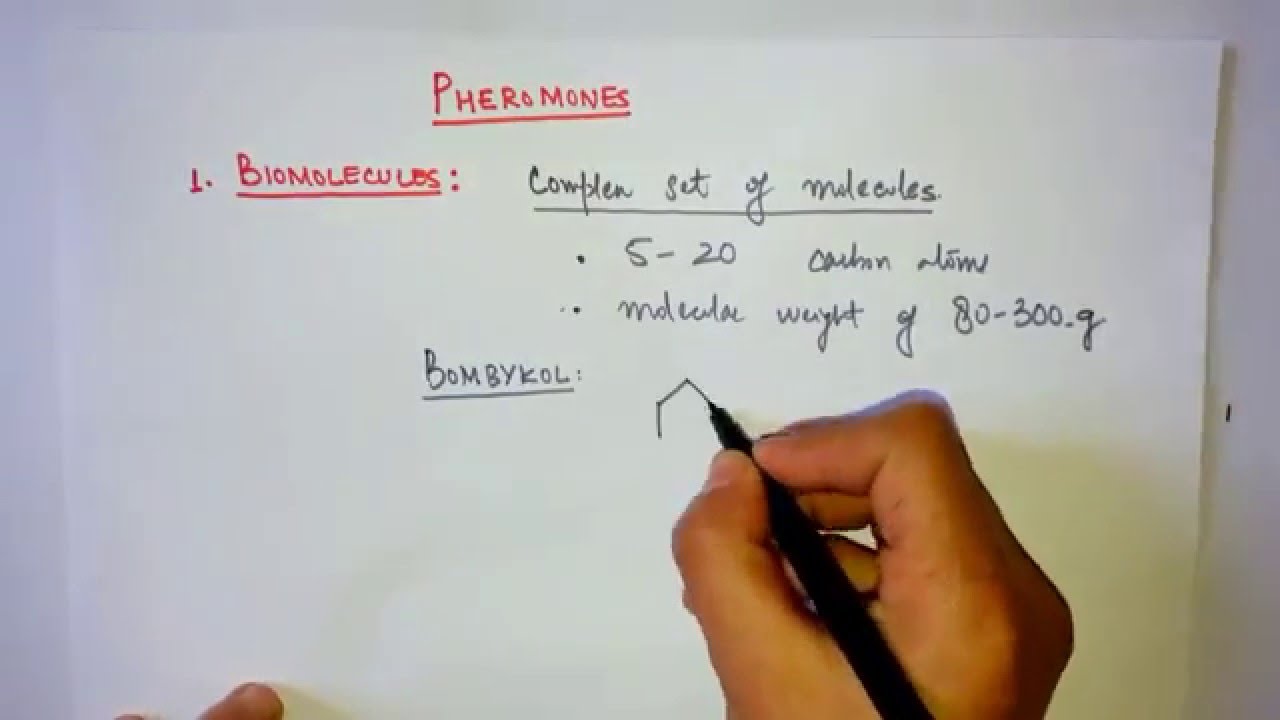 PHEROMONES
1. BIOMOLECULES: Complex set of molecules.
• 5-20 carbon atoms
• molecular weight of 80-300-g
BOMBYKOL: